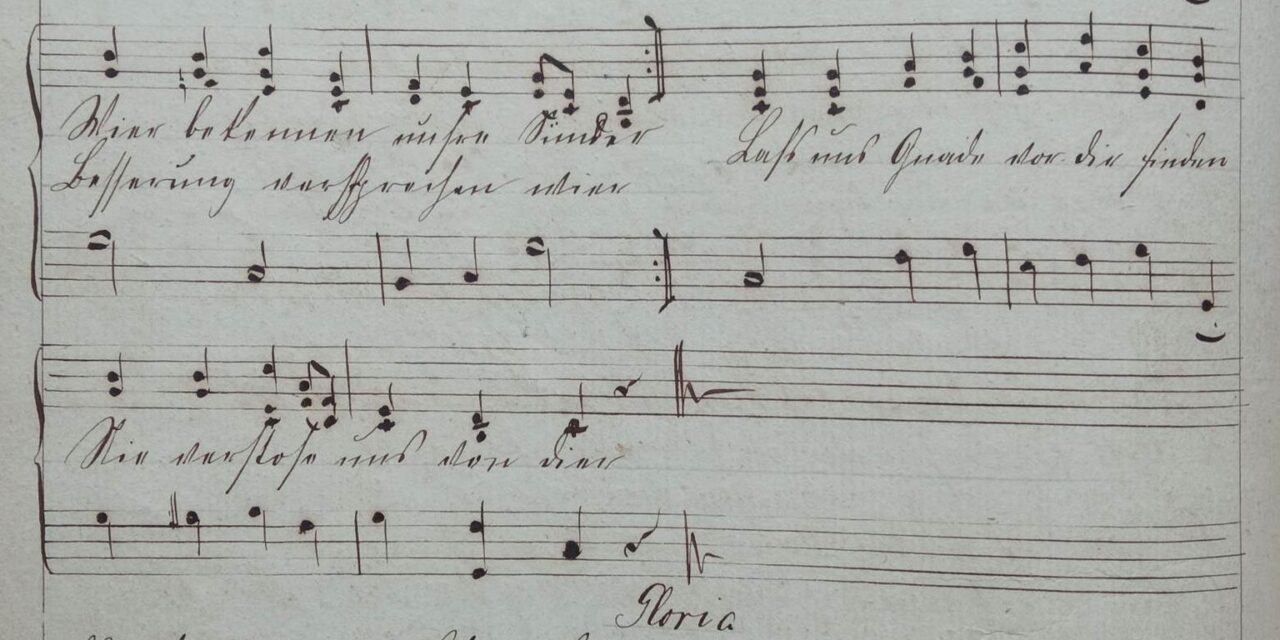 Wier bekennen unsre Sünder Laß uns Gnade vor dir finden
Besserung versprechen wier
Nie verstoße uns von dier
Gloria